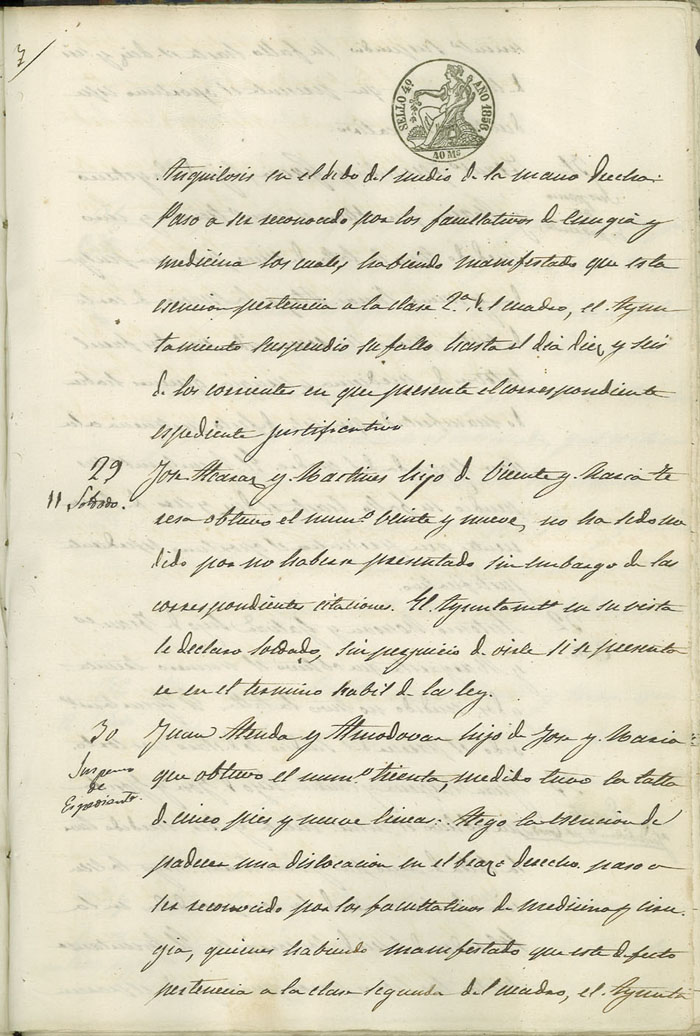 7
SELLO 4º AÑO 1858.
40 Ms
Anquilosis en el dedo del medio de la mano drecha.
Paso a ser reconocido por los facultativos de Cirugia y
medicina los cuales habiendo manifestado que esta
esencion pertenecia a la clase 2ª del cuadro, el Ayun
tamiento suspendio su fallo hasta el dia diez y seis
de los corrientes en que presente el correspondiente
espediente justificativo
29 Jose Alcaraz y Martines hijo de Vicente y Maria Te
11 Soldado.
resa obtuvo el numº veinte y nueve, no ha sido me
dido por no haberse presentado sin embargo de las
correspondientes citaciones. El Ayuntamtº en su vista
le declaro Soldado, sin perjuicio de oirle si se presenta
se en el termino habil de la ley.
30 Juan y Almodovar hijo de Jose y Maria
Suspenso
de
Espediente.
que obtuvo el numº treinta, medido tuvo la talla
de cinco pies y nueve lineas: Alego la esencion de
padecer una dislocacion en el brazo derecho. paso a
ser reconocido por los facultativos de medicina y ciru-
gia, quienes habiendo manifestado que este defecto
pertenecia a la clase segunda del cuadro, el Ayunta